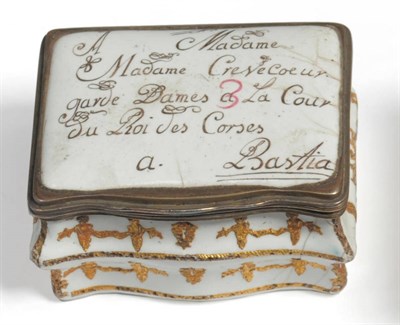 A Madame
Madame Crevecoeur
garde Dames a La Cour
3
du Roi des Corses
a. Bastia